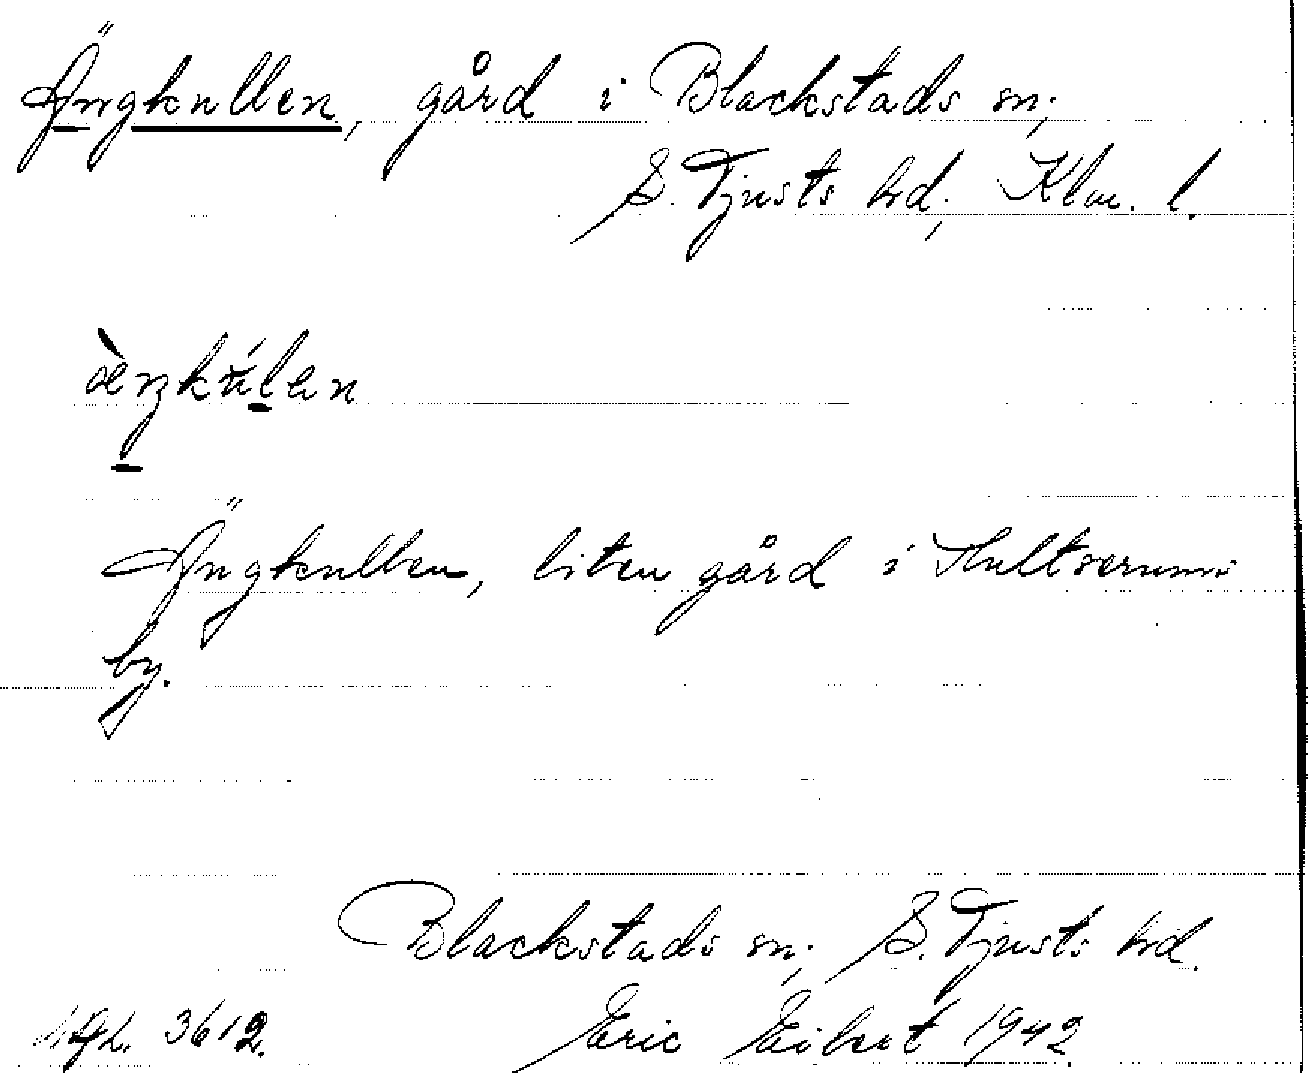 Ängkullen, gård i Blackstads sn;
S. Tjusts hd; Klm. l.
Ängkullen, liten gård i Hultserums
by.
Blackstads sn; S. Tjusts hd.
3612. Eric 1942